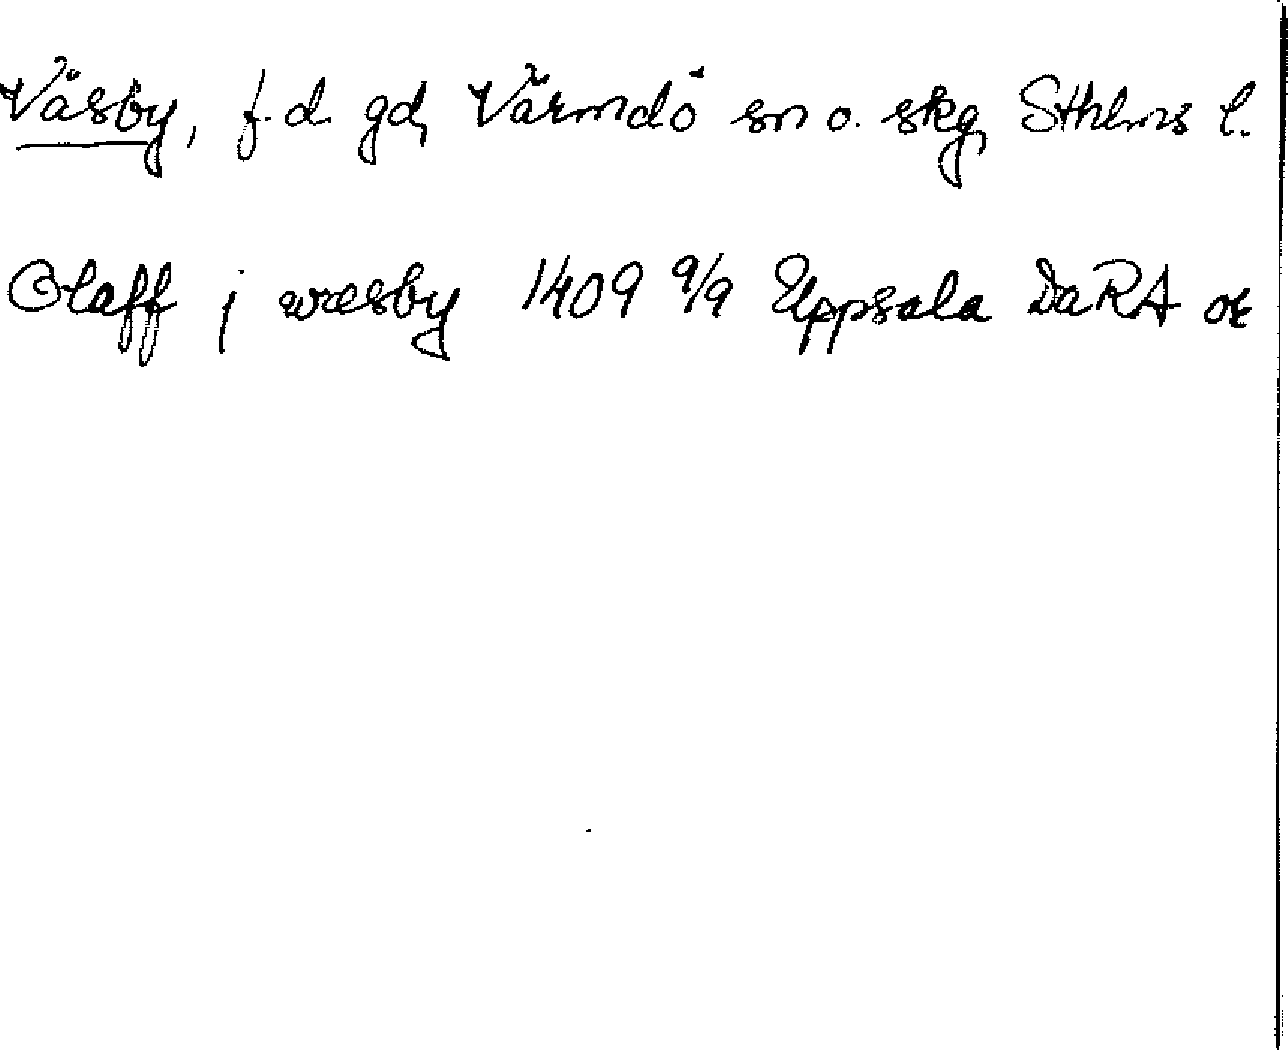 Väsby, f.d. gd, Värmdö sn o. skg, Sthlms l.
Olaff j wæsby 1409 9/9 Uppsala DaRA or